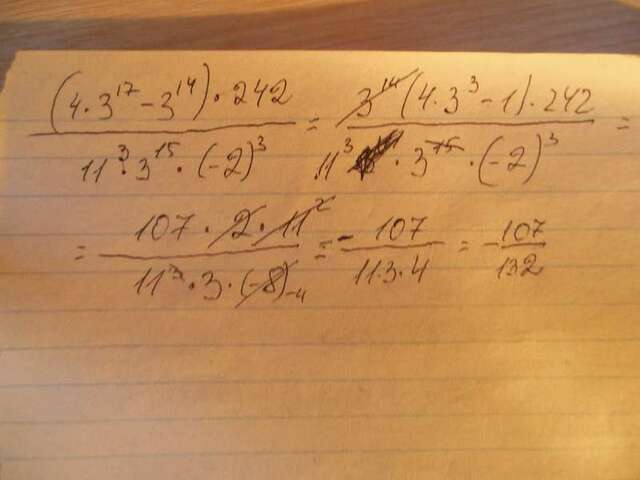 (4·3^17 - 3^14)·242 / 11^3·3^15·(-2)^3 = 3^14 (4·3^3 - 1)·242 / 11^3·3^15·(-2)^3 =
= 107·2·11^2 / 11^3·3·(-8) -4 = - 107 / 11·3·4 = - 107 / 132